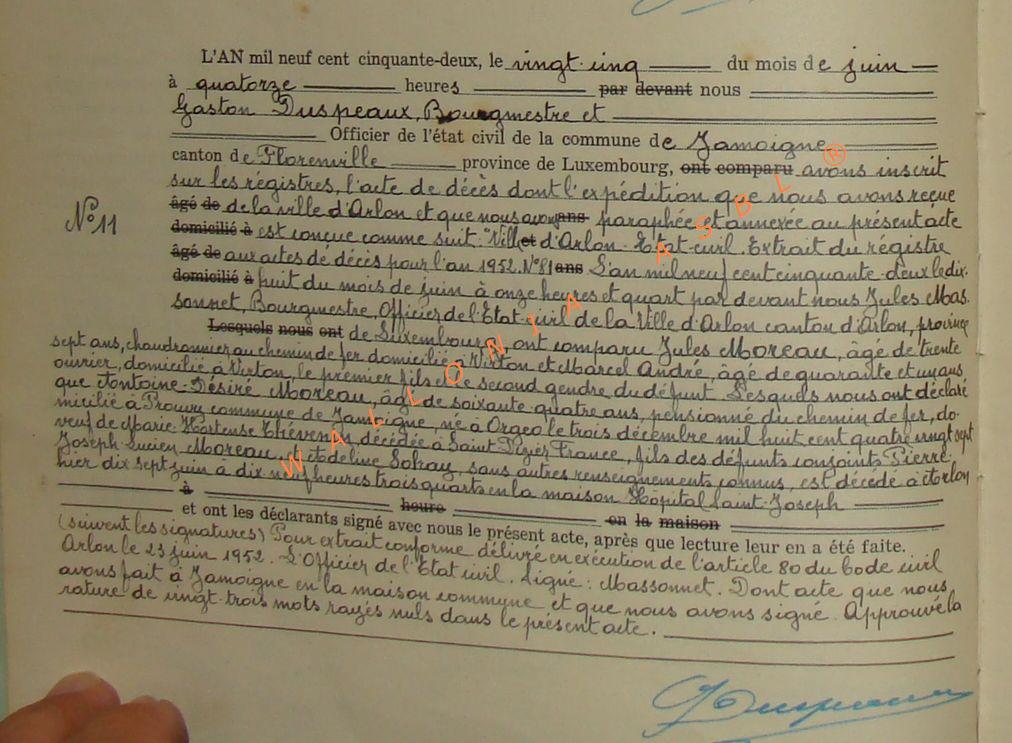 L'AN mil neuf cent cinquante-deux, le vingt-cinq du mois de juin
à quatorze heures par devant nous
Gaston Duspeaux, Bourgmestre et
Officier de l'état civil de la commune de Jamoigne
canton de Florenville province de Luxembourg, ont comparu avons inscrit
sur les régistres, l'acte de décès dont l'expédition que nous avons reçue
âgé de de la ville d'Arlon et que nous avons ans paraphée et annexée au présent acte
N° 11
domicilié à est conçue comme suit: "Ville et d'Arlon - Etat-civil. Extrait du régistre
âgé de aux actes de décès pour l'an 1952. N° 81 ans L'an mil neuf cent cinquante-deux le dix-
domicilié à huit du mois de juin à onze heures et quart par devant nous Jules Mas-
sonnet, Bourgmestre, Officier de l'Etat-civil de la Ville d'Arlon canton d'Arlon, province
Lesquels nous ont de Luxembourg, ont comparu Jules Moreau, âgé de trente
sept ans, chaudronnier au chemin de fer domicilié à Virton et Marcel André, âgé de quarante et un ans
ouvrier, domicilié à Virton, le premier fils et le second gendre du défunt. Lesquels nous ont déclaré
que Antoine-Désiré Moreau, âgé de soixante-quatre ans, pensionné du chemin de fer, do-
micilié à Prouvy commune de Jamoigne, né à Orgeo le trois décembre mil huit cent quatre vingt sept
veuf de Marie-Hortense Thévenin, décédée à Saint Dizier France, fils des défunts conjoints Pierre-
Joseph-Lucien Moreau, et Adeline, sans autres renseignements connus, est décédé à Arlon
hier dix sept juin à dix neuf heures trois quarts en la maison Hôpital Saint-Joseph
à heure en la maison
et ont les déclarants signé avec nous le présent acte, après que lecture leur en a été faite.
(suivent les signatures) Pour extrait conforme délivré en exécution de l'article 80 du Code civil
Arlon le 23 juin 1952. L'Officier de l'Etat civil. Signé: Massonnet. Dont acte que nous
avons fait à Jamoigne en la maison commune et que nous avons signé. Approuvé la
rature de vingt-trois mots rayés nuls dans le présent acte.
G Duspeaux
WALLONIA ASBL ®